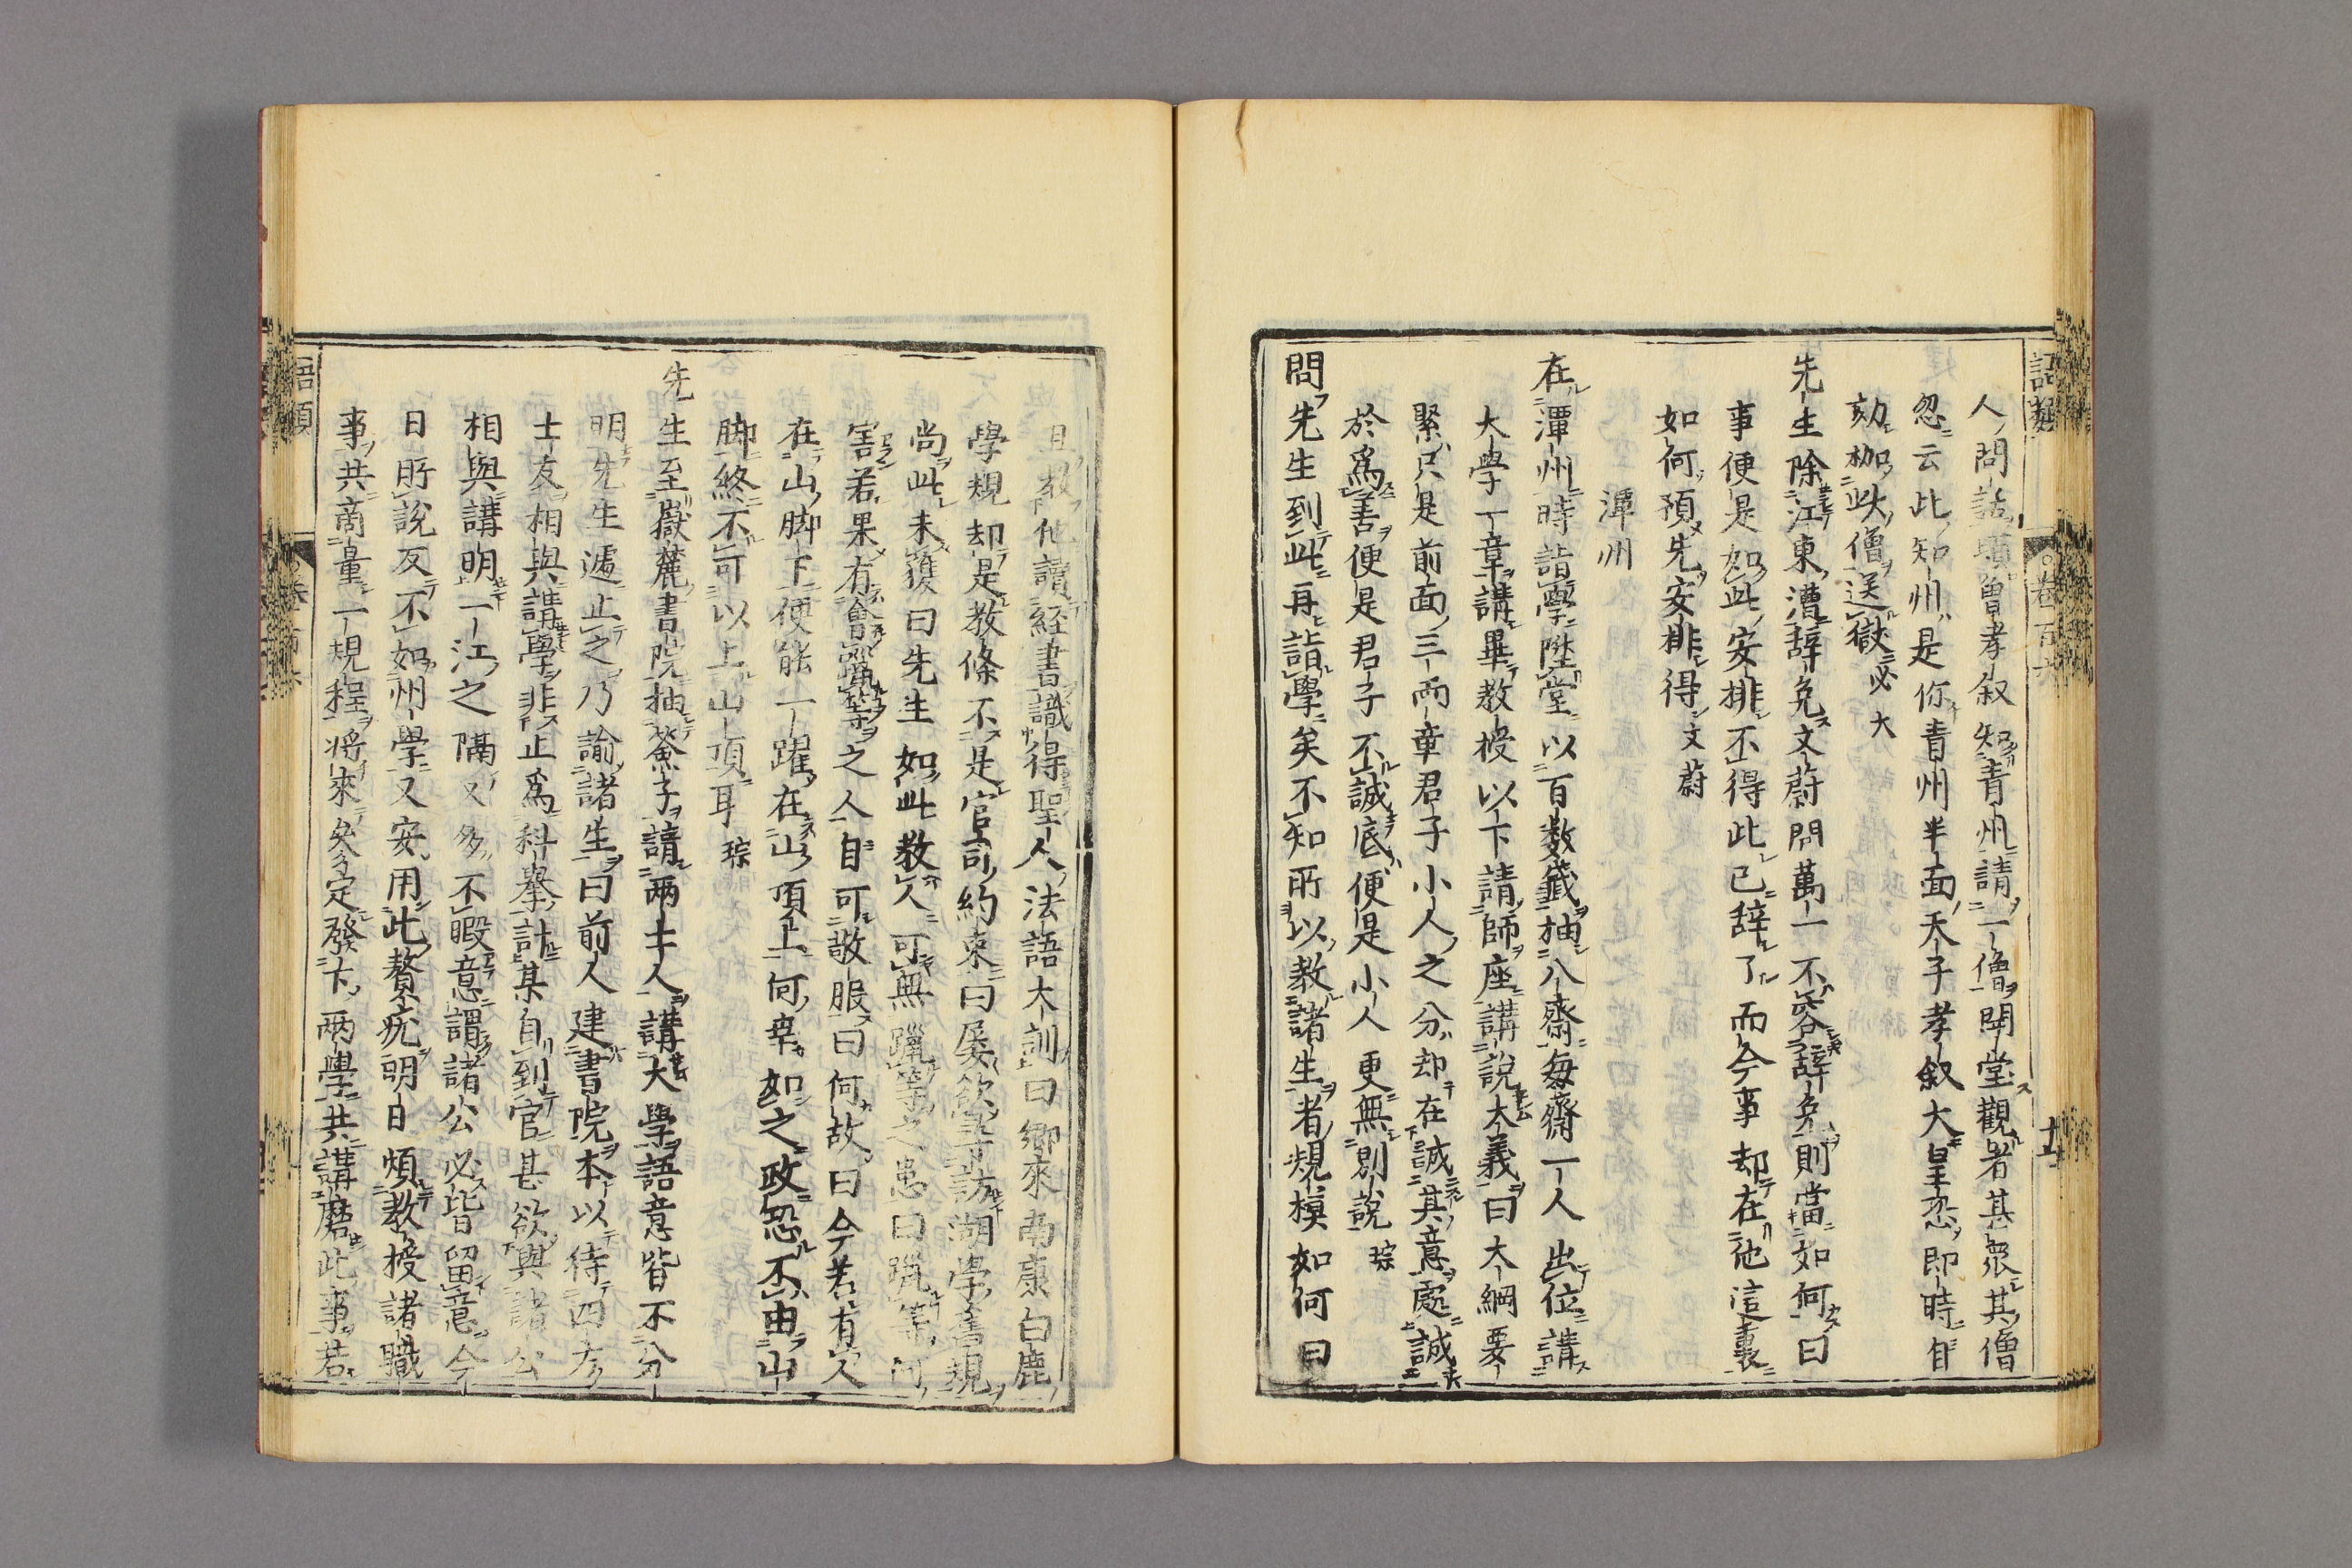 語類
卷百六
十五
人問話頭曾孝叙知青州請一僧開堂觀者甚衆其僧
忽云此知州是你青州半面天子孝叙大皇恐即時自
劾枷此僧送獄必大
先生除江東漕辭免文蔚問萬一不容辭免則當如何曰
事便是如此安排不得此已辞了而今事却在他這裏
如何預先安排得文蔚
潭州
在潭州時詣學陞堂以百數籤抽八齋每齋一人出位講
大學一章講畢教授以下請師座講說大義曰大綱要
緊只是前面三兩章君子小人之分却在誠其意處誠
於爲善便是君子不誠底便是小人更無別說琮
問先生到此再詣學矣不知所以教諸生者規模如何曰
且教他讀経書識得聖人法語大訓曰鄉來南康白鹿
學規却是教條不是官司約束曰屡欲尋訪湖學舊規
尚此未獲曰先生如此教人可無躐等之患曰躐等何
害若果有會躐等之人自可敬服曰何故曰今若有人
在山脚下便能一躍在山頂上何幸如之政恐不由山
脚終不可以上山頂耳琮
先生至嶽麓書院抽籤子請兩士人講大學語意皆不分
明先生遽止之乃諭諸生曰前人建書院本以待四方
士友相與講學非止爲科舉計某自到官甚欲與諸公
相與講明一江之隔又多不暇意謂諸公必皆留意今
日所說反不如州學又安用此贅疣明日煩教授諸職
事共商量一規程將來参定發下兩學共講磨此事若
語類